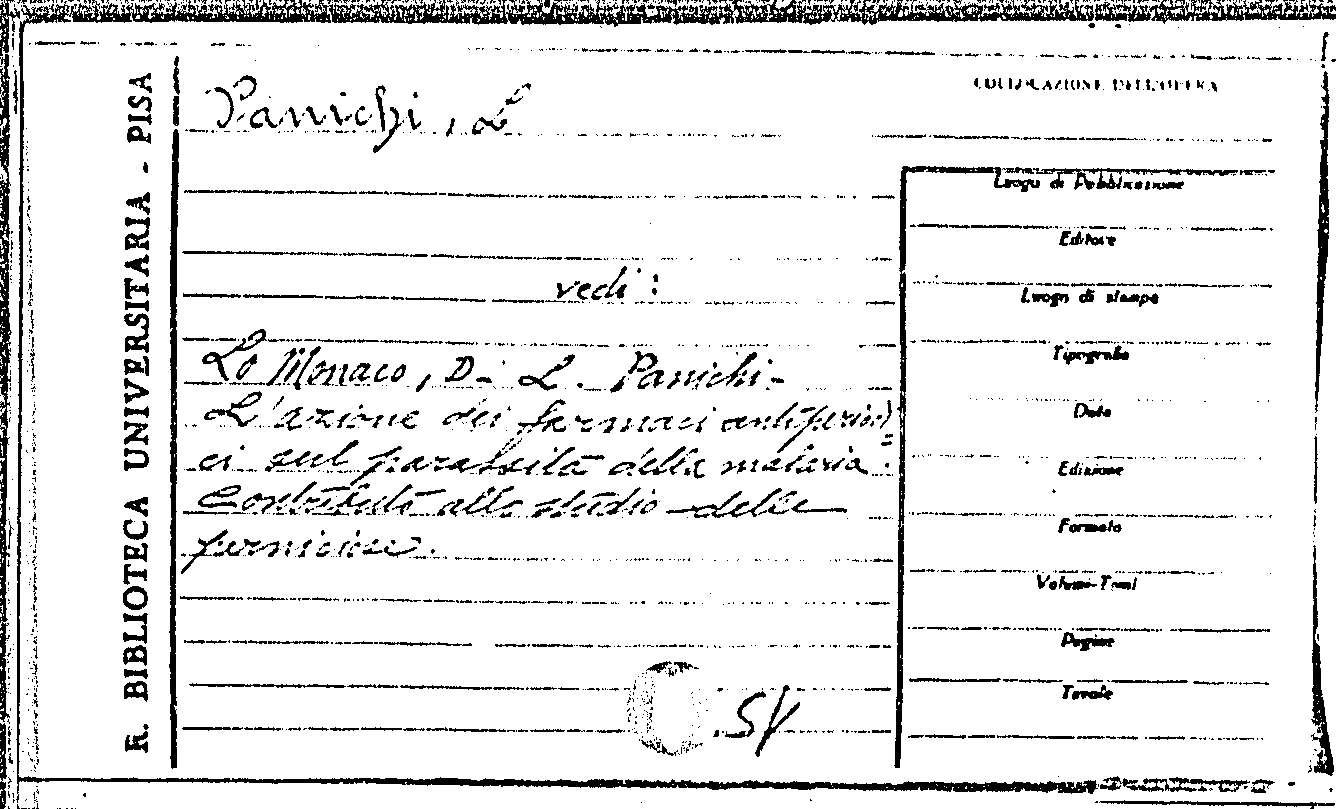 R. BIBLIOTECA UNIVERSITARIA - PISA
Panichi, L
COLLOCAZIONE DELL'OPERA
vedi:
Lo Monaco, D - L. Panichi -
L'azione dei farmaci antiperiodi=
ci sul parassita della malaria.
Contributo allo studio delle
perniciose.
SV
Luogo di Pubblicazione
Editore
Luogo di stampa
Tipografia
Data
Edizione
Formato
Volumi-Tomi
Pagine
Tavole